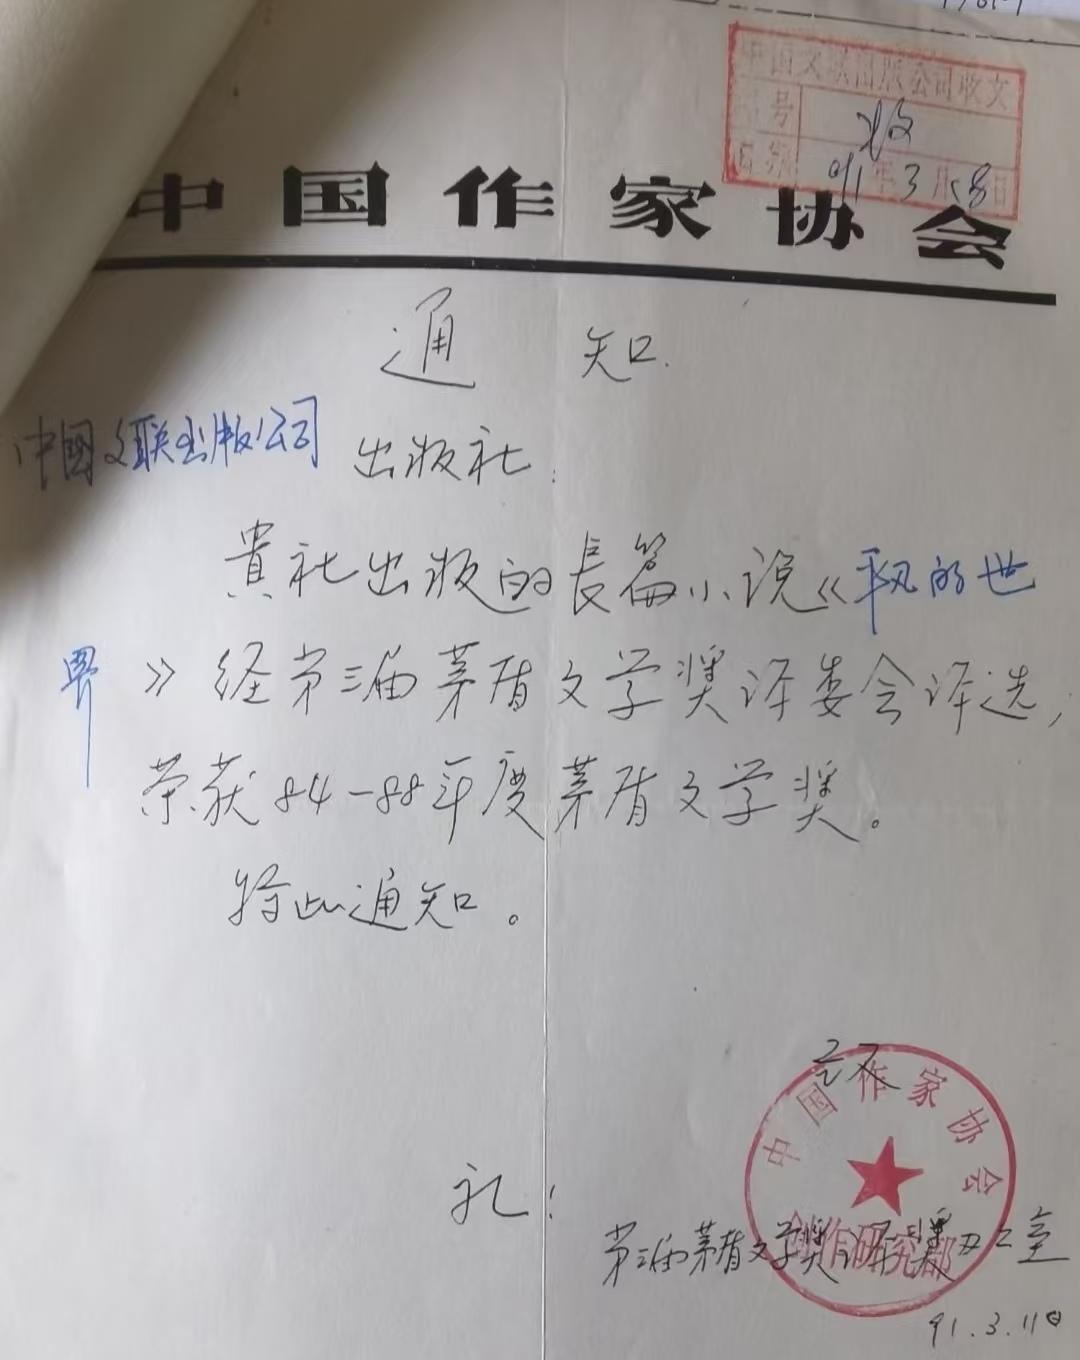 中国文联出版公司收文
号 收
日期 91年3月18日
中国作家协会
通知
中国文联出版公司 出版社:
貴社出版的長篇小说《平凡的世
界》经第三届茅盾文学奖评委会评选,
荣获84-88年度茅盾文学奖。
特此通知。
礼!
中国作家协会
创作研究部
第三届茅盾文学奖评奖办公室
91.3.11日